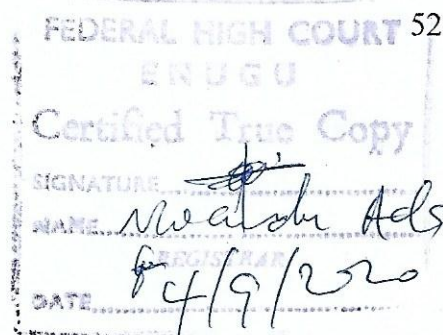 FEDERAL HIGH COURT 52
ENUGU
Certified True Copy
SIGNATURE
NAME
REGISTRAR
DATE 4/9/2020